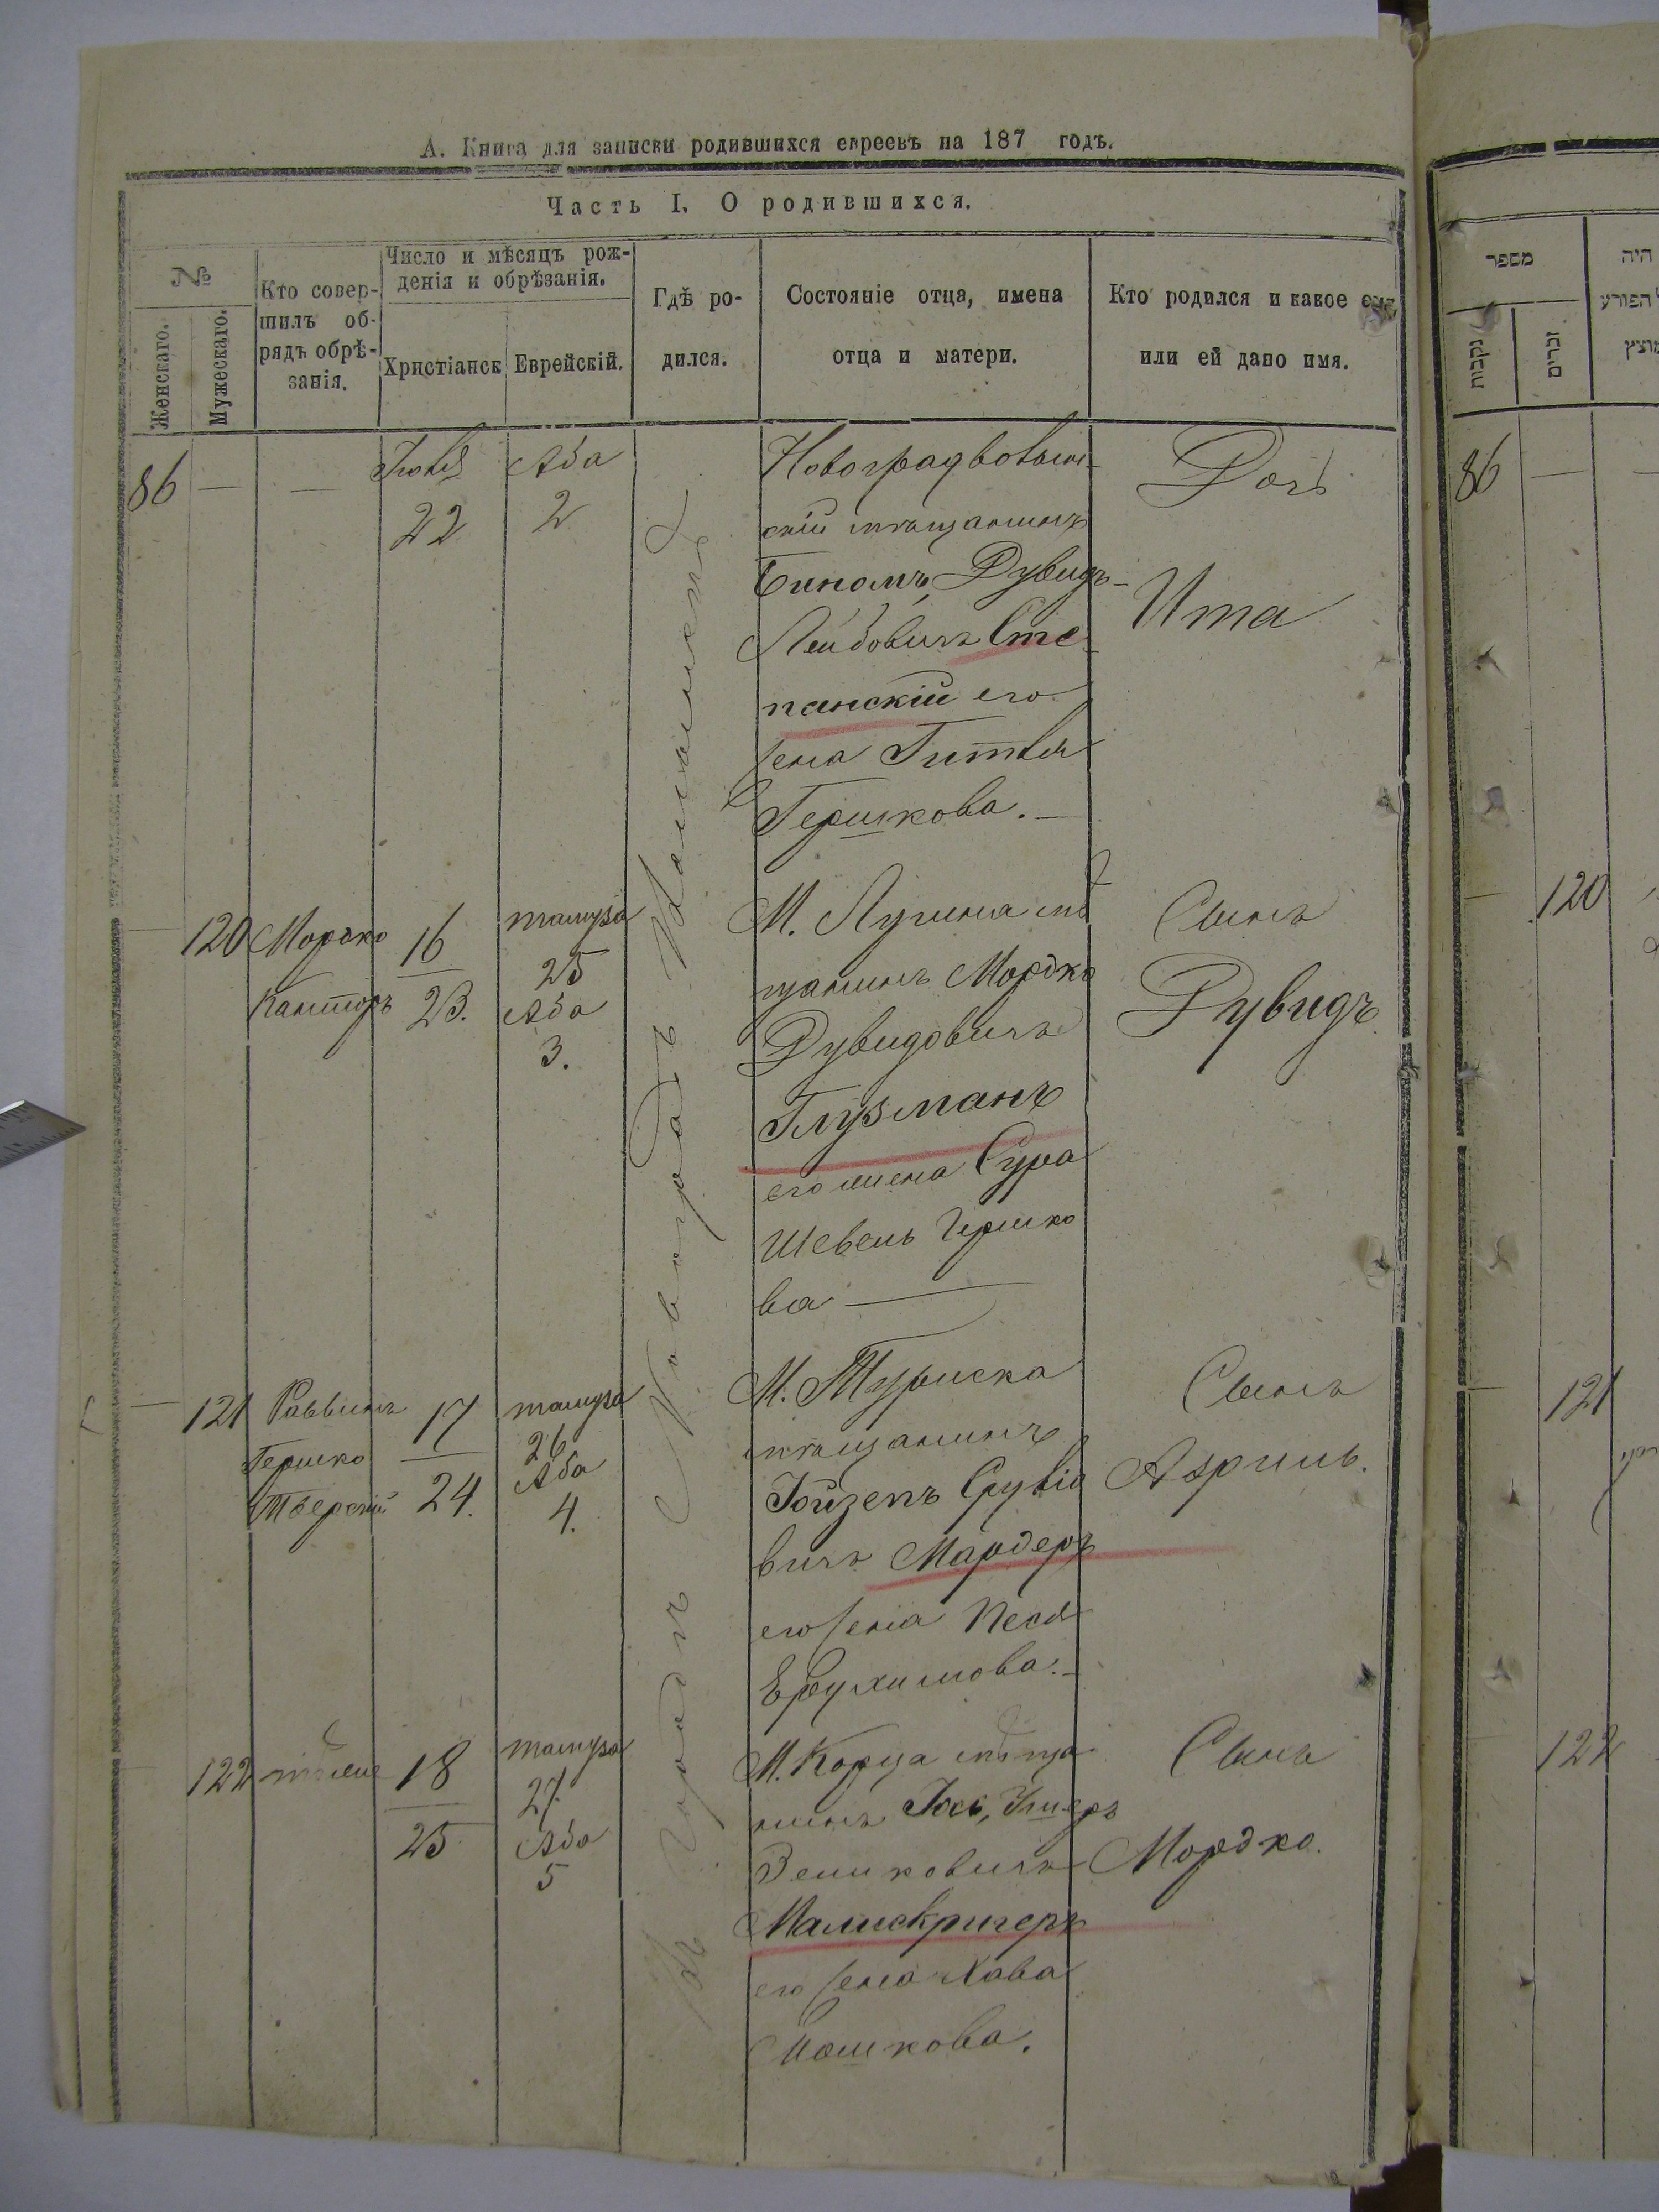 А. Книга для записки родившихся евреевъ на 187 годъ.
Часть I. О родившихся.
№
Женскаго.
Мужескаго.
Кто совер-
шилъ об-
рядъ обрѣ-
занія.
Число и мѣсяцъ рож-
денія и обрѣзанія.
Христіанск
Еврейскій.
Гдѣ ро-
дился.
Состояніе отца, имена
отца и матери.
Кто родился и какое ему
или ей дано имя.
Въ городѣ Новоградъ Волынскѣ
86 — —
Іюля
22
Аба
2
Новоградволын-
скій мѣщанинъ
Биномъ, Дувидъ-
Лейбовичъ Сте-
панскій его
жена Гитля
Гершкова. —
Дочь
Ита
— 120
Мордко
Канторъ
16
23.
тамуза
25
Аба
3.
М. Лугина мѣ
щанинъ Мордко
Дувидовичъ
Глузманъ
его жена Сура
Шевель Гершко
ва —
Сынъ
Дувидъ
— 121
Раввинъ
Гершко
Тверскій
17
24.
тамуза
26
Аба
4.
М. Туриска
мѣщанинъ
Іойзепъ Срулiо
вичъ Мардеръ
его жена Песя
Ерухимова. —
Сынъ
Азриль.
— 122
тоже
18
25
тамуза
27
Аба
5
М. Корца мѣща
нинъ Іось, Ушеръ
Зейликовичъ
его жена Хава
Мошкова.
Сынъ
Мордко.
מספר
נקבות
זכרים
היה
הפורע
מוצץ
86 — —
— 120
— 121
122